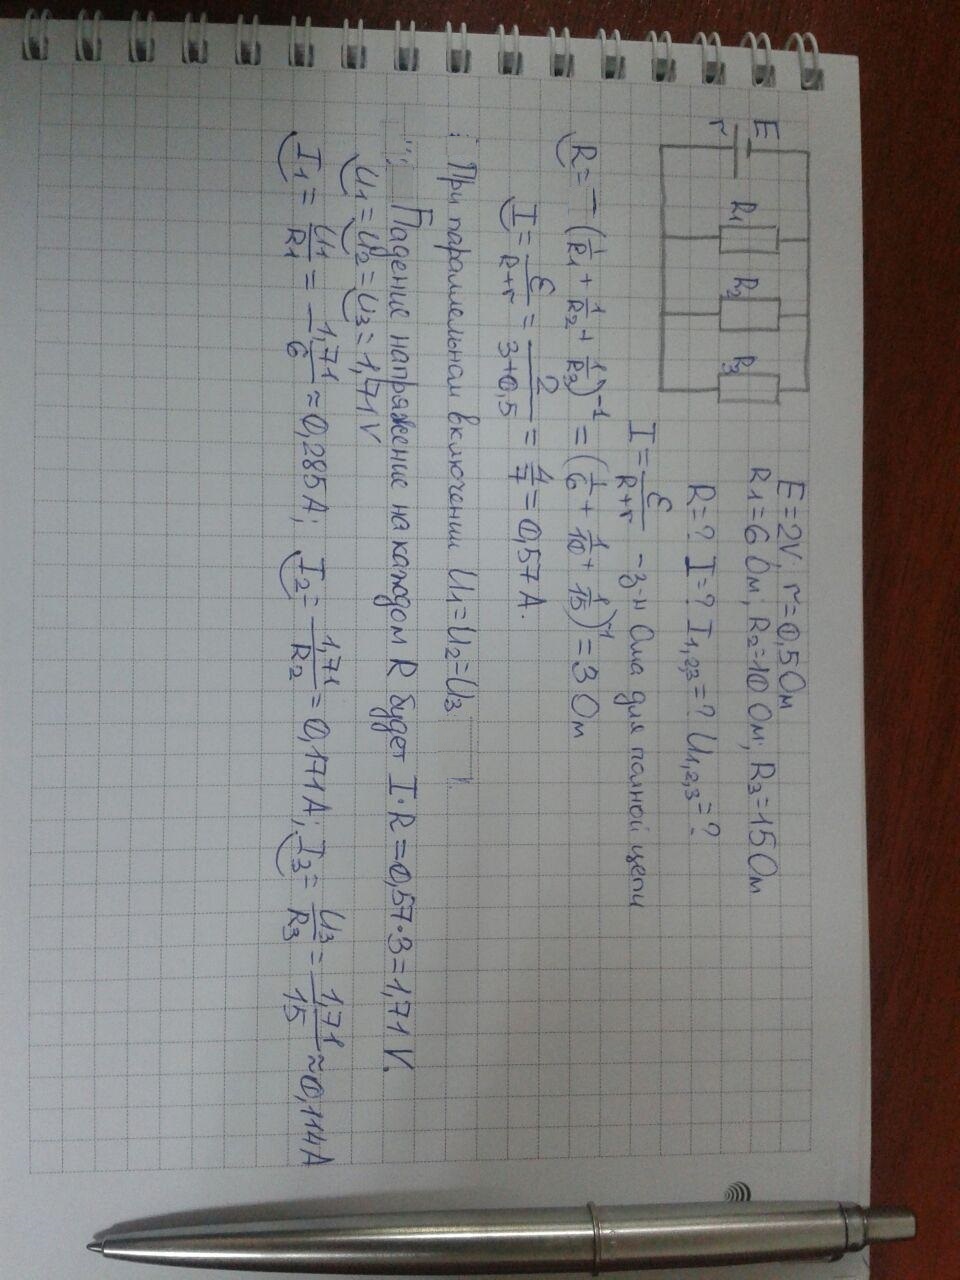 E
r
R1
R2
R3
E=2V; r=0,5Ом
R1=6 Ом; R2=10 Ом; R3=15Ом
R=? I=? I1,2,3=? U1,2,3=?
I=ε/(R+r) - з-н Ома для полной цепи
R=(1/R1+1/R2+1/R3)^-1=(1/6+1/10+1/15)^-1=3 Ом
I=ε/(R+r)=2/(3+0,5)=4/7=0,57А.
При параллельном включении U1=U2=U3
Падение напряжение на каждом R будет I·R=0,57·3=1,71 V.
U1=U2=U3=1,71V
I1=U1/R1=1,71/6≈0,285А; I2=1,71/R2=0,171А; I3=U3/R3=1,71/15≈0,114А